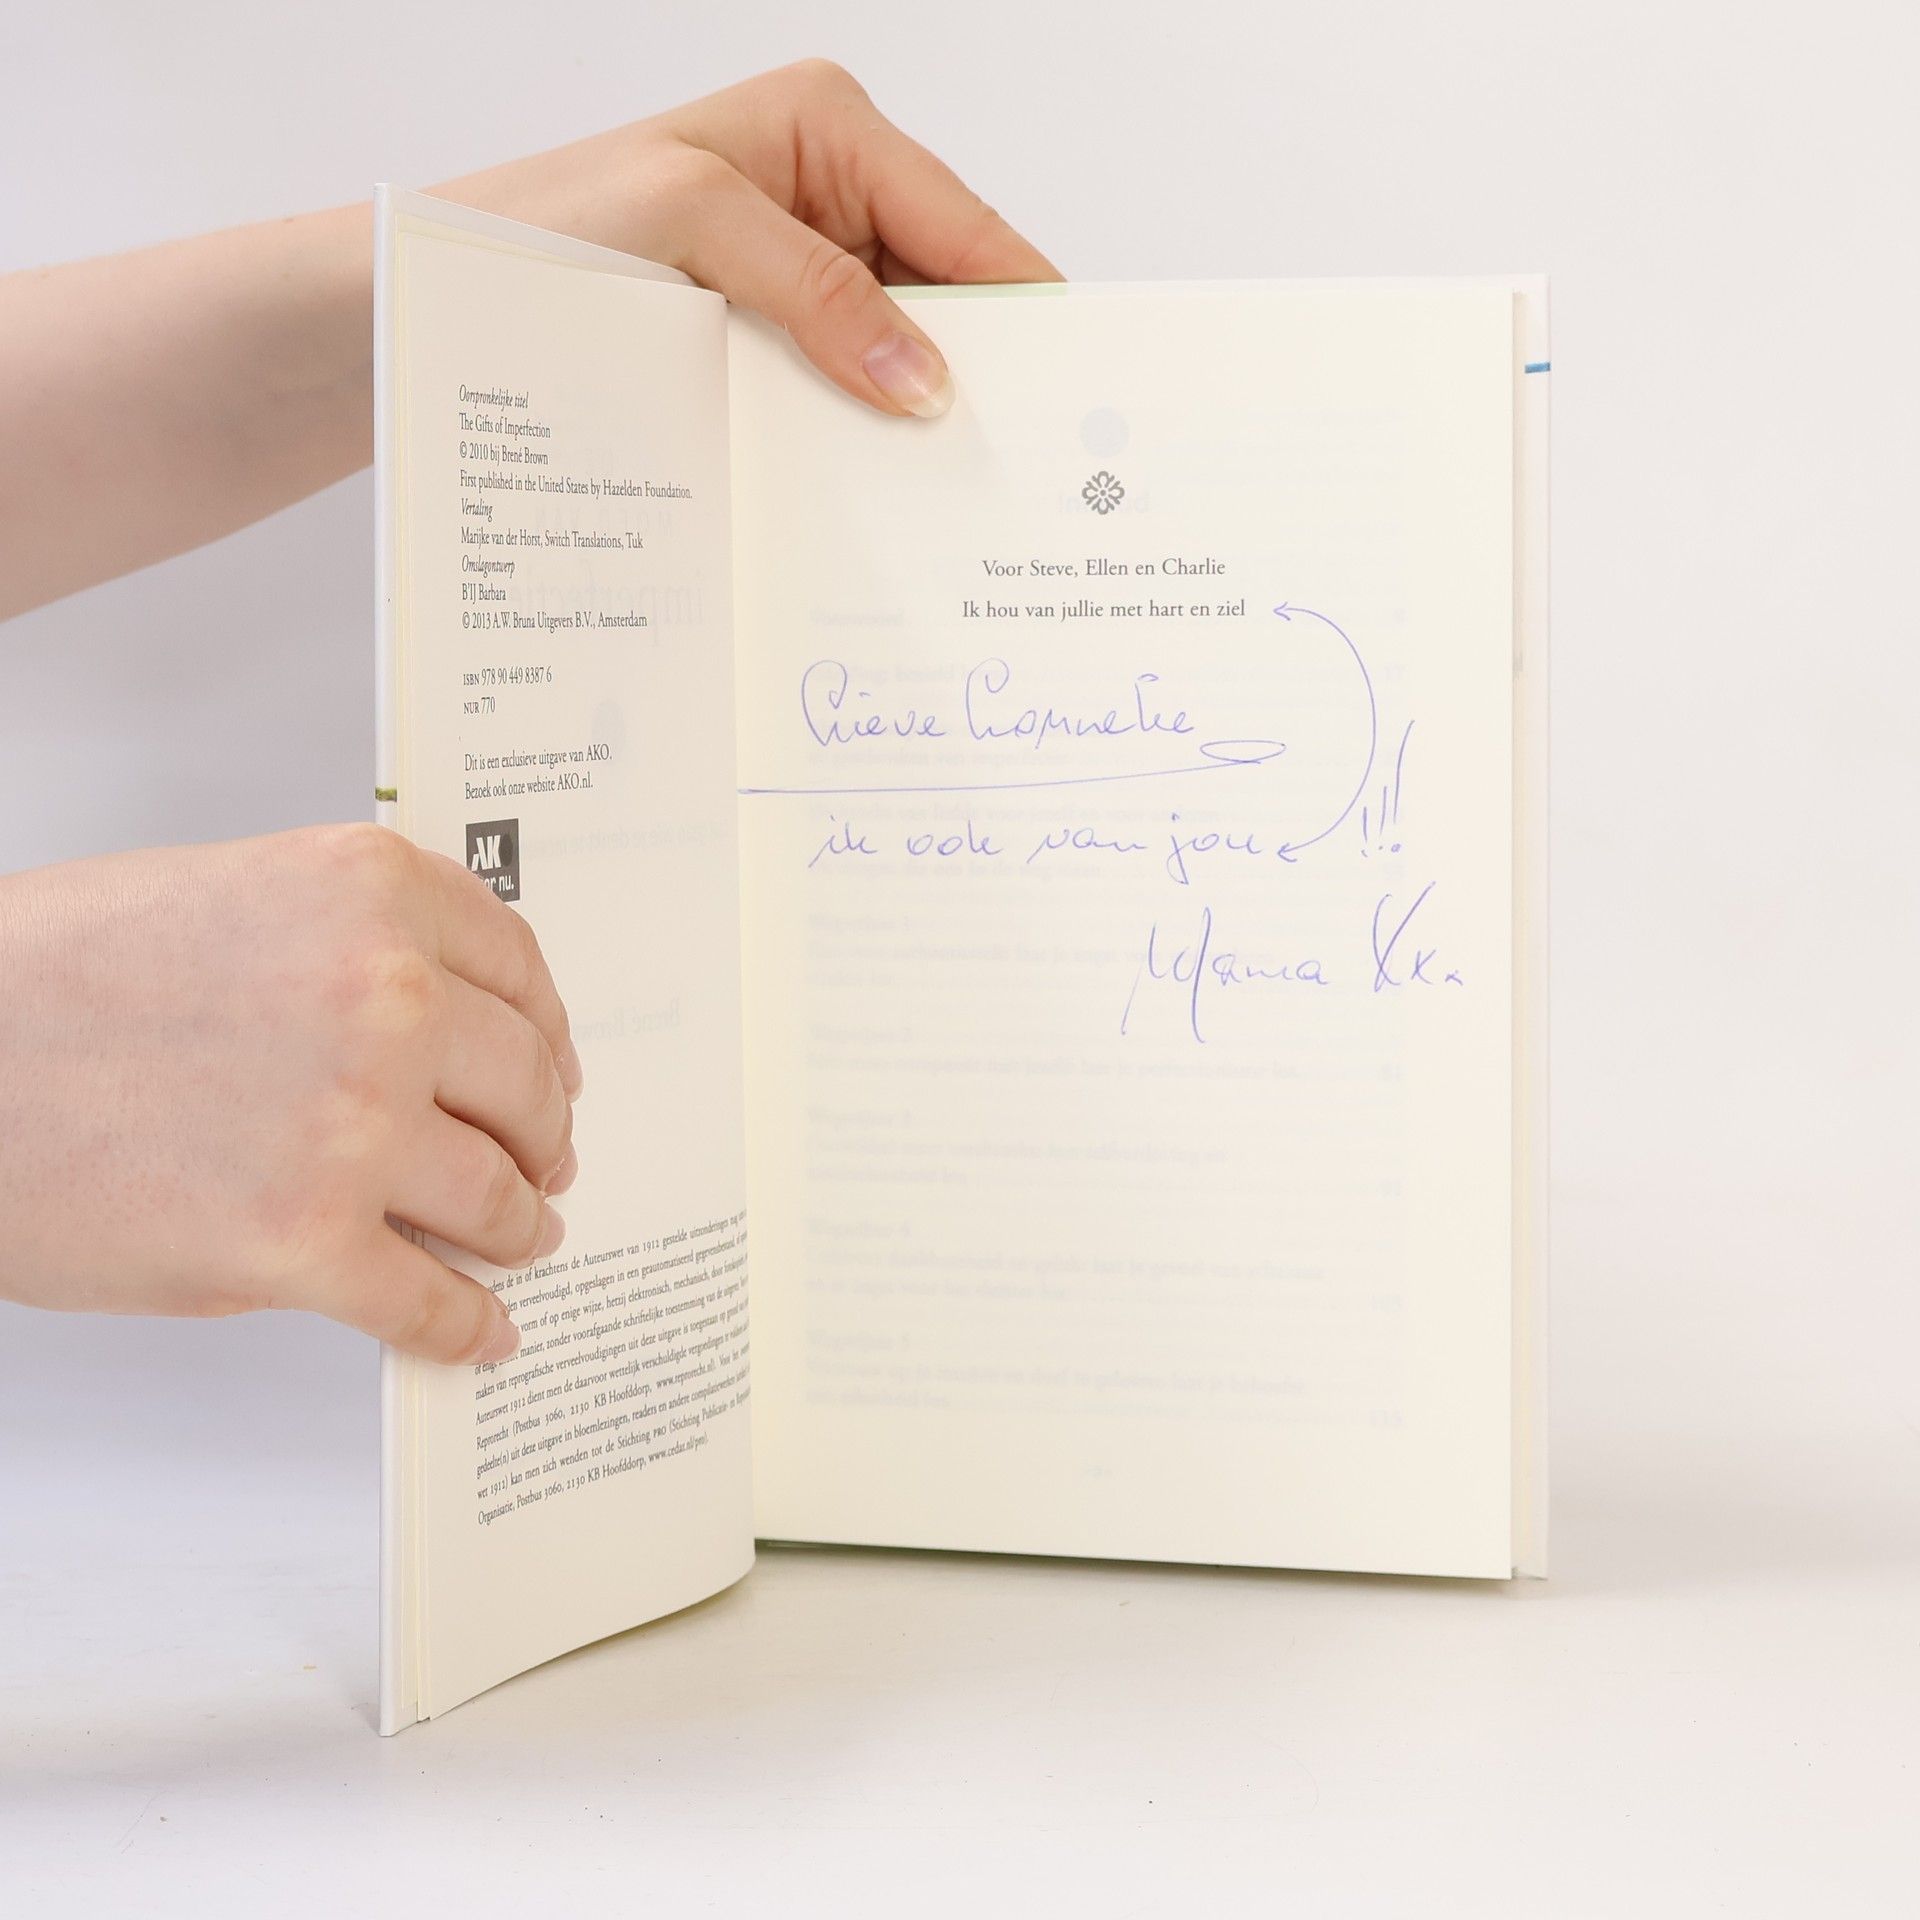 Oorspronkelijke titel
The Gifts of Imperfection
© 2010 bij Brené Brown
First published in the United States by Hazelden Foundation.
Vertaling
Marijke van der Horst, Switch Translations, Tuk
Omslagontwerp
B'IJ Barbara
© 2013 A.W. Bruna Uitgevers B.V., Amsterdam
ISBN 978 90 449 8387 6
NUR 770
Dit is een exclusieve uitgave van AKO.
Bezoek ook onze website AKO.nl.
AKO
nu.
de in of krachtens de Auteurswet van 1912 gestelde uitzonderingen mag
verveelvoudigd, opgeslagen in een geautomatiseerd gegevensbestand, of
vorm of op enige wijze, hetzij elektronisch, mechanisch, door
manier, zonder voorafgaande schriftelijke toestemming van de uitgever.
maken van reprografische verveelvoudigingen uit deze uitgave is toegestaan op grond van
Auteurswet 1912 dient men de daarvoor wettelijk verschuldigde vergoedingen te voldoen aan
Reprorecht (Postbus 3060, 2130 KB Hoofddorp, www.reprorecht.nl). Voor het
gedeelte(n) uit deze uitgave in bloemlezingen, readers en andere compilatiewerken
wet 1912) kan men zich wenden tot de Stichting PRO (Stichting Publicatie- en
Organisatie, Postbus 3060, 2130 KB Hoofddorp, www.cedar.nl/pro).
Voor Steve, Ellen en Charlie
Ik hou van jullie met hart en ziel
Lieve
ik ook van jou !!!
Mama Xxx